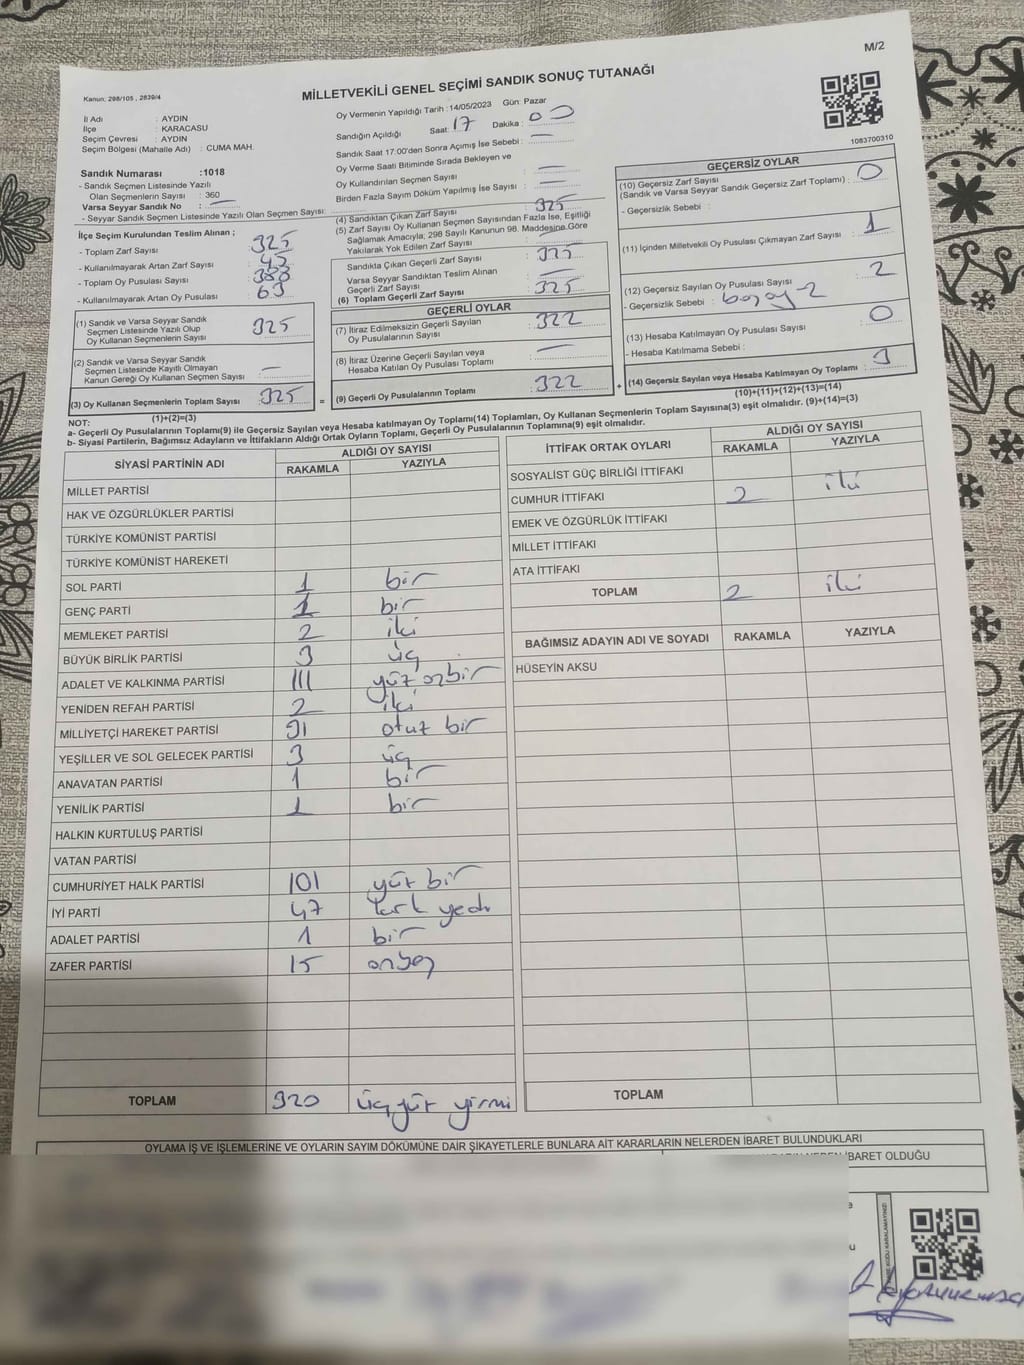 M/2
Kanun: 298/105 , 2839/4
MİLLETVEKİLİ GENEL SEÇİMİ SANDIK SONUÇ TUTANAĞI
1083700310
İl Adı : AYDIN
İlçe : KARACASU
Seçim Çevresi : AYDIN
Seçim Bölgesi (Mahalle Adı) : CUMA MAH.
Sandık Numarası :1018
- Sandık Seçmen Listesinde Yazılı
Olan Seçmenlerin Sayısı : 360
Varsa Seyyar Sandık No : —
- Seyyar Sandık Seçmen Listesinde Yazılı Olan Seçmen Sayısı:
İlçe Seçim Kurulundan Teslim Alınan ;
- Toplam Zarf Sayısı : 325
- Kullanılmayarak Artan Zarf Sayısı
- Toplam Oy Pusulası Sayısı : 388
- Kullanılmayarak Artan Oy Pusulası : 63
(1) Sandık ve Varsa Seyyar Sandık
Seçmen Listesinde Yazılı Olup
Oy Kullanan Seçmenlerin Sayısı : 325
(2) Sandık ve Varsa Seyyar Sandık
Seçmen Listesinde Kayıtlı Olmayan
Kanun Gereği Oy Kullanan Seçmen Sayısı : —
(3) Oy Kullanan Seçmenlerin Toplam Sayısı : 325
(1)+(2)=(3)
Oy Vermenin Yapıldığı Tarih : 14/05/2023 Gün: Pazar
Sandığın Açıldığı Saat: 17 Dakika : 00
Sandık Saat 17:00'den Sonra Açımış İse Sebebi : —
Oy Verme Saati Bitiminde Sırada Bekleyen ve
Oy Kullandırılan Seçmen Sayısı : —
Birden Fazla Sayım Döküm Yapılmış İse Sayısı : —
(4) Sandıktan Çıkan Zarf Sayısı : 325
(5) Zarf Sayısı Oy Kullanan Seçmen Sayısından Fazla İse, Eşitliği
Sağlamak Amacıyla; 298 Sayılı Kanunun 98. Maddesine Göre
Yakılarak Yok Edilen Zarf Sayısı : —
Sandıkta Çıkan Geçerli Zarf Sayısı : 325
Varsa Seyyar Sandıktan Teslim Alınan
Geçerli Zarf Sayısı : —
(6) Toplam Geçerli Zarf Sayısı : 325
GEÇERLİ OYLAR
(7) İtiraz Edilmeksizin Geçerli Sayılan
Oy Pusulalarının Sayısı : 322
(8) İtiraz Üzerine Geçerli Sayılan veya
Hesaba Katılan Oy Pusulası Toplamı : —
= (9) Geçerli Oy Pusulalarının Toplamı : 322
GEÇERSİZ OYLAR
(10) Geçersiz Zarf Sayısı
(Sandık ve Varsa Seyyar Sandık Geçersiz Zarf Toplamı) : 0
- Geçersizlik Sebebi :
(11) İçinden Milletvekili Oy Pusulası Çıkmayan Zarf Sayısı : 1
(12) Geçersiz Sayılan Oy Pusulası Sayısı : 2
- Geçersizlik Sebebi :
(13) Hesaba Katılmayan Oy Pusulası Sayısı : 0
- Hesaba Katılmama Sebebi :
+ (14) Geçersiz Sayılan veya Hesaba Katılmayan Oy Toplamı : 3
(10)+(11)+(12)+(13)=(14)
NOT:
a- Geçerli Oy Pusulalarının Toplamı(9) ile Geçersiz Sayılan veya Hesaba katılmayan Oy Toplamı(14) Toplamları, Oy Kullanan Seçmenlerin Toplam Sayısına(3) eşit olmalıdır. (9)+(14)=(3)
b- Siyasi Partilerin, Bağımsız Adayların ve İttifakların Aldığı Ortak Oyların Toplamı, Geçerli Oy Pusulalarının Toplamına(9) eşit olmalıdır.
SİYASİ PARTİNİN ADI ALDIĞI OY SAYISI
RAKAMLA YAZIYLA
MİLLET PARTİSİ
HAK VE ÖZGÜRLÜKLER PARTİSİ
TÜRKİYE KOMÜNİST PARTİSİ
TÜRKİYE KOMÜNİST HAREKETİ
SOL PARTİ 1 bir
GENÇ PARTİ 1 bir
MEMLEKET PARTİSİ 2 iki
BÜYÜK BİRLİK PARTİSİ 3 üç
ADALET VE KALKINMA PARTİSİ 111 yüz onbir
YENİDEN REFAH PARTİSİ 2 iki
MİLLİYETÇİ HAREKET PARTİSİ 31 otuz bir
YEŞİLLER VE SOL GELECEK PARTİSİ 3 üç
ANAVATAN PARTİSİ 1 bir
YENİLİK PARTİSİ 1 bir
HALKIN KURTULUŞ PARTİSİ
VATAN PARTİSİ
CUMHURİYET HALK PARTİSİ 101 yüz bir
İYİ PARTİ 47 kırk yedi
ADALET PARTİSİ 1 bir
ZAFER PARTİSİ 15 onbeş
TOPLAM 320 üçyüz yirmi
İTTİFAK ORTAK OYLARI ALDIĞI OY SAYISI
RAKAMLA YAZIYLA
SOSYALİST GÜÇ BİRLİĞİ İTTİFAKI
CUMHUR İTTİFAKI 2 iki
EMEK VE ÖZGÜRLÜK İTTİFAKI
MİLLET İTTİFAKI
ATA İTTİFAKI
TOPLAM 2 iki
BAĞIMSIZ ADAYIN ADI VE SOYADI RAKAMLA YAZIYLA
HÜSEYİN AKSU
TOPLAM
OYLAMA İŞ VE İŞLEMLERİNE VE OYLARIN SAYIM DÖKÜMÜNE DAİR ŞİKAYETLERLE BUNLARA AİT KARARLARIN NELERDEN İBARET BULUNDUKLARI
İBARET OLDUĞU